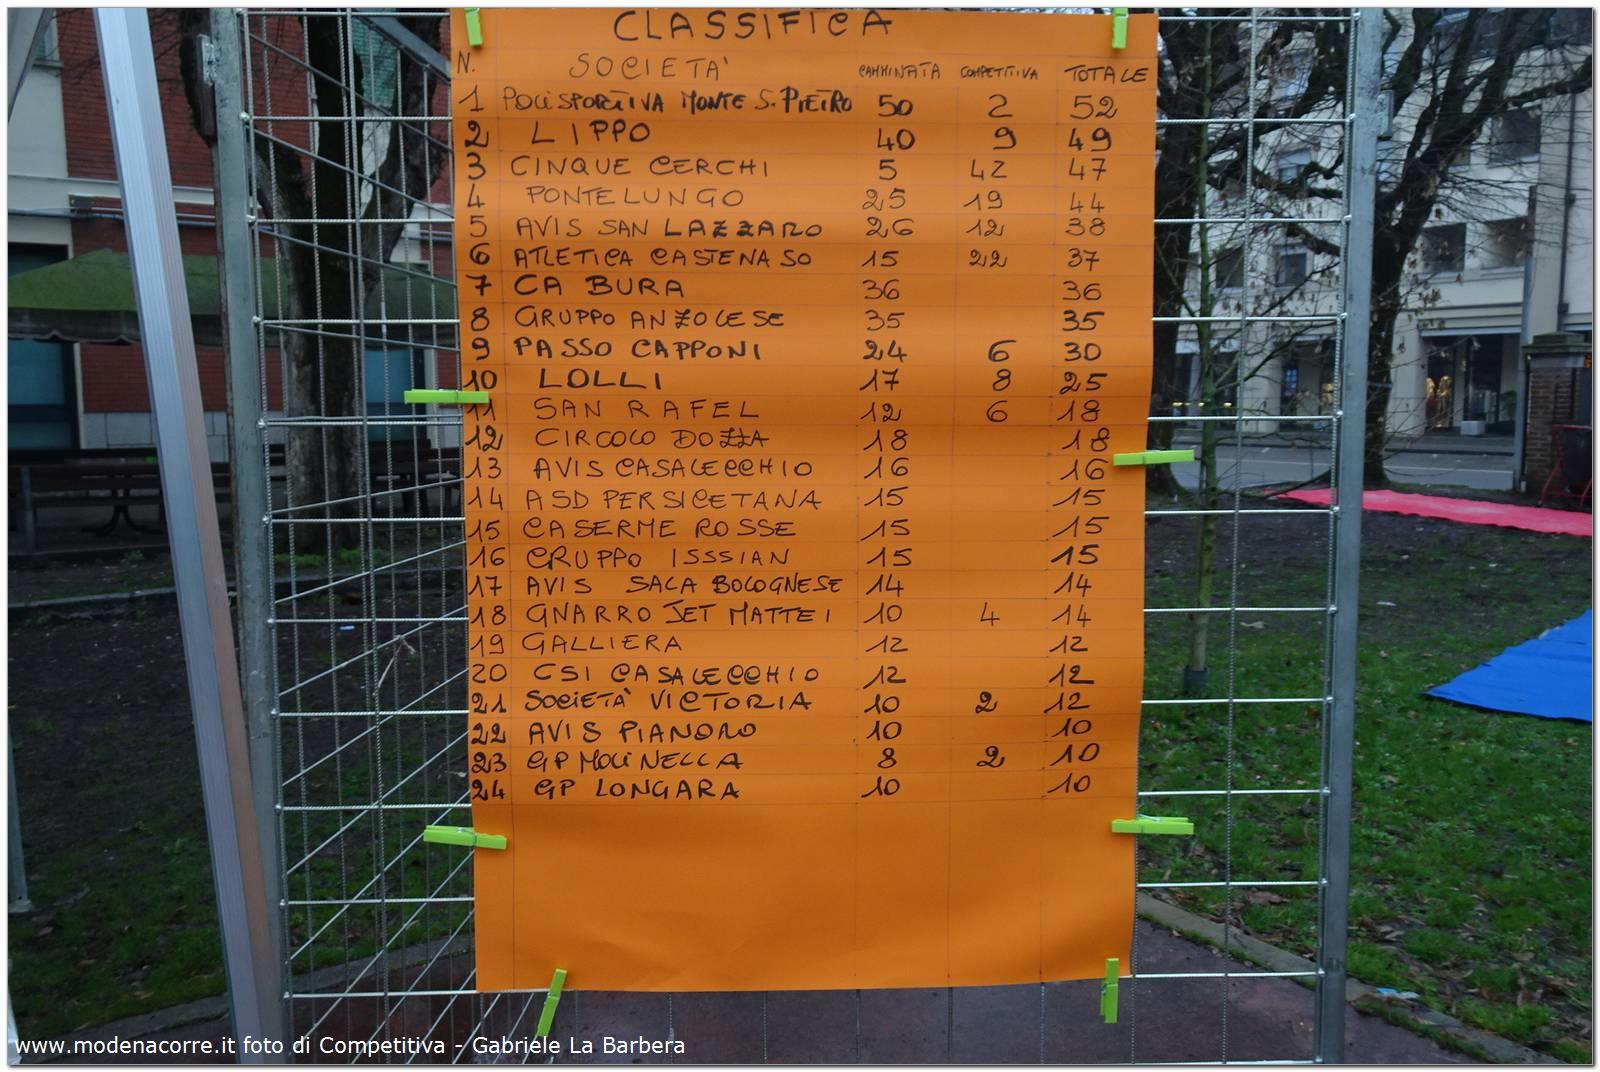 CLASSIFICA
N. SOCIETA' CAMMINATA COMPETITIVA TOTALE
1 POLISPORTIVA MONTE S. PIETRO 50 2 52
2 LIPPO 40 9 49
3 CINQUE CERCHI 5 42 47
4 PONTELUNGO 25 19 44
5 AVIS SAN LAZZARO 26 12 38
6 ATLETICA CASTENASO 15 22 37
7 CA BURA 36 36
8 GRUPPO ANZOLESE 35 35
9 PASSO CAPPONI 24 6 30
10 LOLLI 17 8 25
11 SAN RAFEL 12 6 18
12 CIRCOLO DOZZA 18 18
13 AVIS CASALECCHIO 16 16
14 ASD PERSICETANA 15 15
15 CASERME ROSSE 15 15
16 GRUPPO ISSSIAN 15 15
17 AVIS SALA BOLOGNESE 14 14
18 GNARRO JET MATTEI 10 4 14
19 GALLIERA 12 12
20 CSI CASALECCHIO 12 12
21 SOCIETA' VICTORIA 10 2 12
22 AVIS PIANORO 10 10
23 GP MOLINELLA 8 2 10
24 GP LONGARA 10 10
www.modenacorre.it foto di Competitiva - Gabriele La Barbera